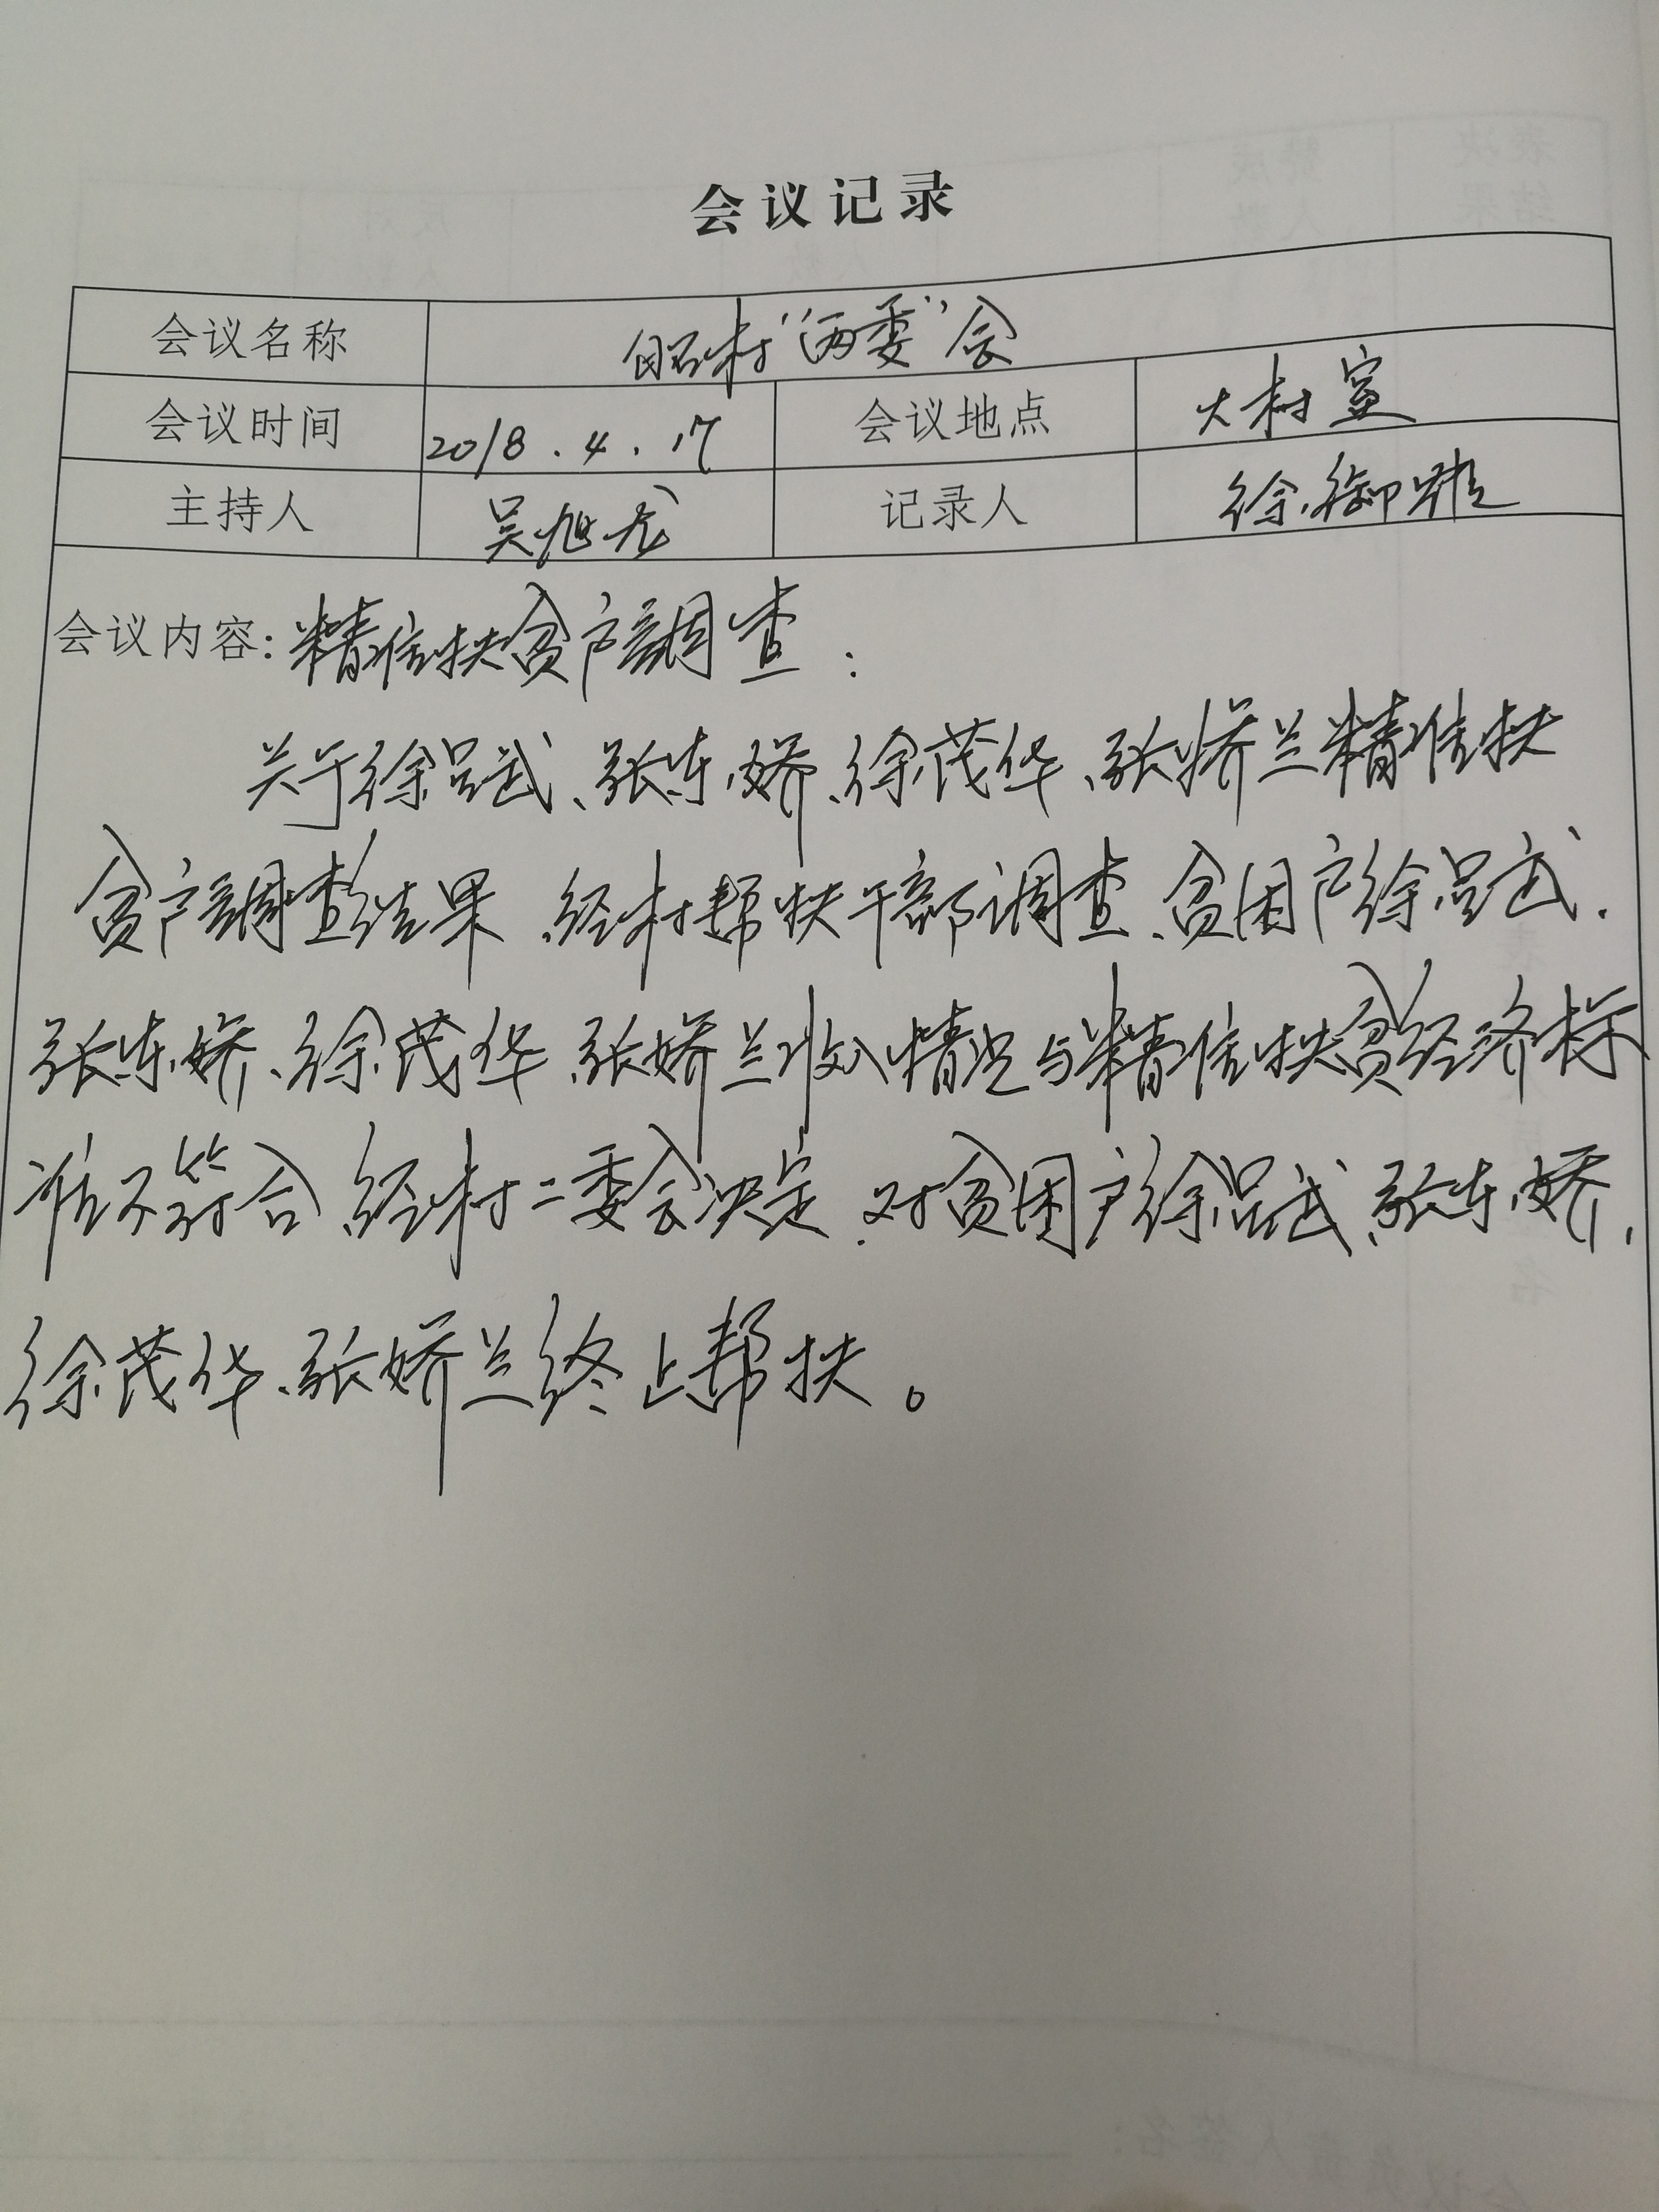 会议记录
会议名称 村“两委”会
会议时间 2018.4.17 会议地点 大村室
主持人 吴旭龙 记录人 徐御雅
会议内容:精准扶贫户调查:
关于徐吕武、张东娇、徐茂华、张娇兰精准扶
贫户调查结果、经村帮扶干部调查、贫困户徐吕武、
张东娇、徐茂华、张娇兰收入情况与精准扶贫经济标
准不符合、经村二委会决定、对贫困户徐吕武、张东娇、
徐茂华、张娇兰终止帮扶。